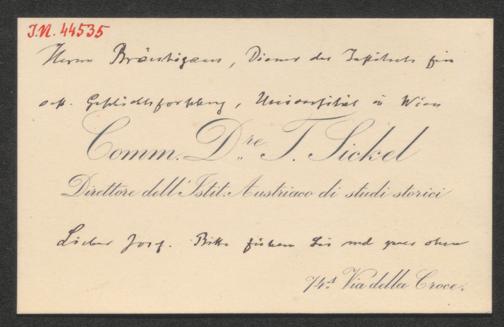 J.N. 44535
Herrn Bräutigam, Diener des Instituts für
öst. Geschichtsforschung, Universität in Wien
Comm. Dre. T. Sickel
Direttore dell'Istit. Austriaco di studi storici
Lieber Josef. Bitte Sie und
74A Via della Croce.